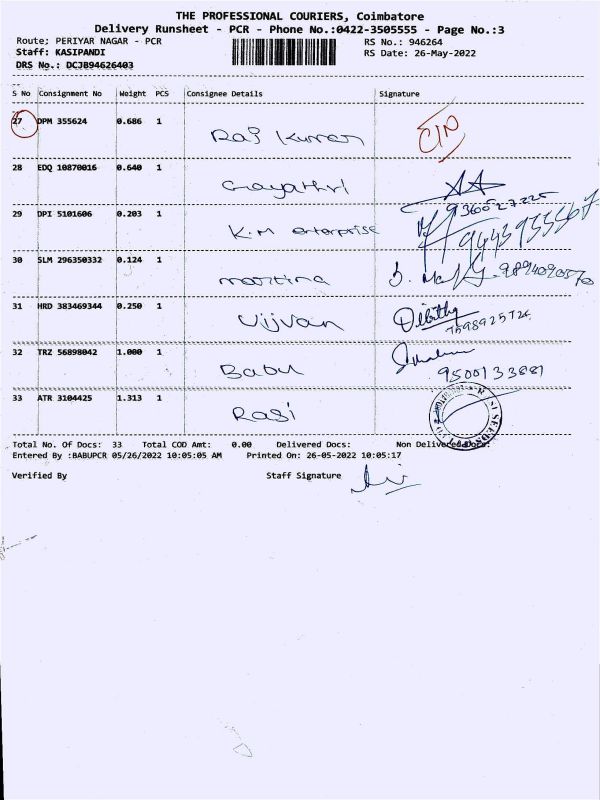 THE PROFESSIONAL COURIERS, Coimbatore
Delivery Runsheet - PCR - Phone No.:0422-3505555 - Page No.:3
Route: PERIYAR NAGAR - PCR RS No.: 946264
Staff: KASIPANDI RS Date: 26-May-2022
DRS No.: DCJB94626403
S No Consignment No Weight PCS Consignee Details Signature
27 DPM 355624 0.686 1 Raj Kumar
28 EDQ 10870016 0.640 1 Gayathri
29 DPI 5101606 0.203 1 K.M enterprise
30 SLM 296350332 0.124 1
31 HRD 383469344 0.250 1 Vijvan 7598925726
32 TRZ 56898042 1.000 1 Babu 9500133881
33 ATR 3104425 1.313 1 Rasi
Total No. Of Docs: 33 Total COD Amt: 0.00 Delivered Docs: Non Delivered Docs:
Entered By :BABUPCR 05/26/2022 10:05:05 AM Printed On: 26-05-2022 10:05:17
Verified By Staff Signature